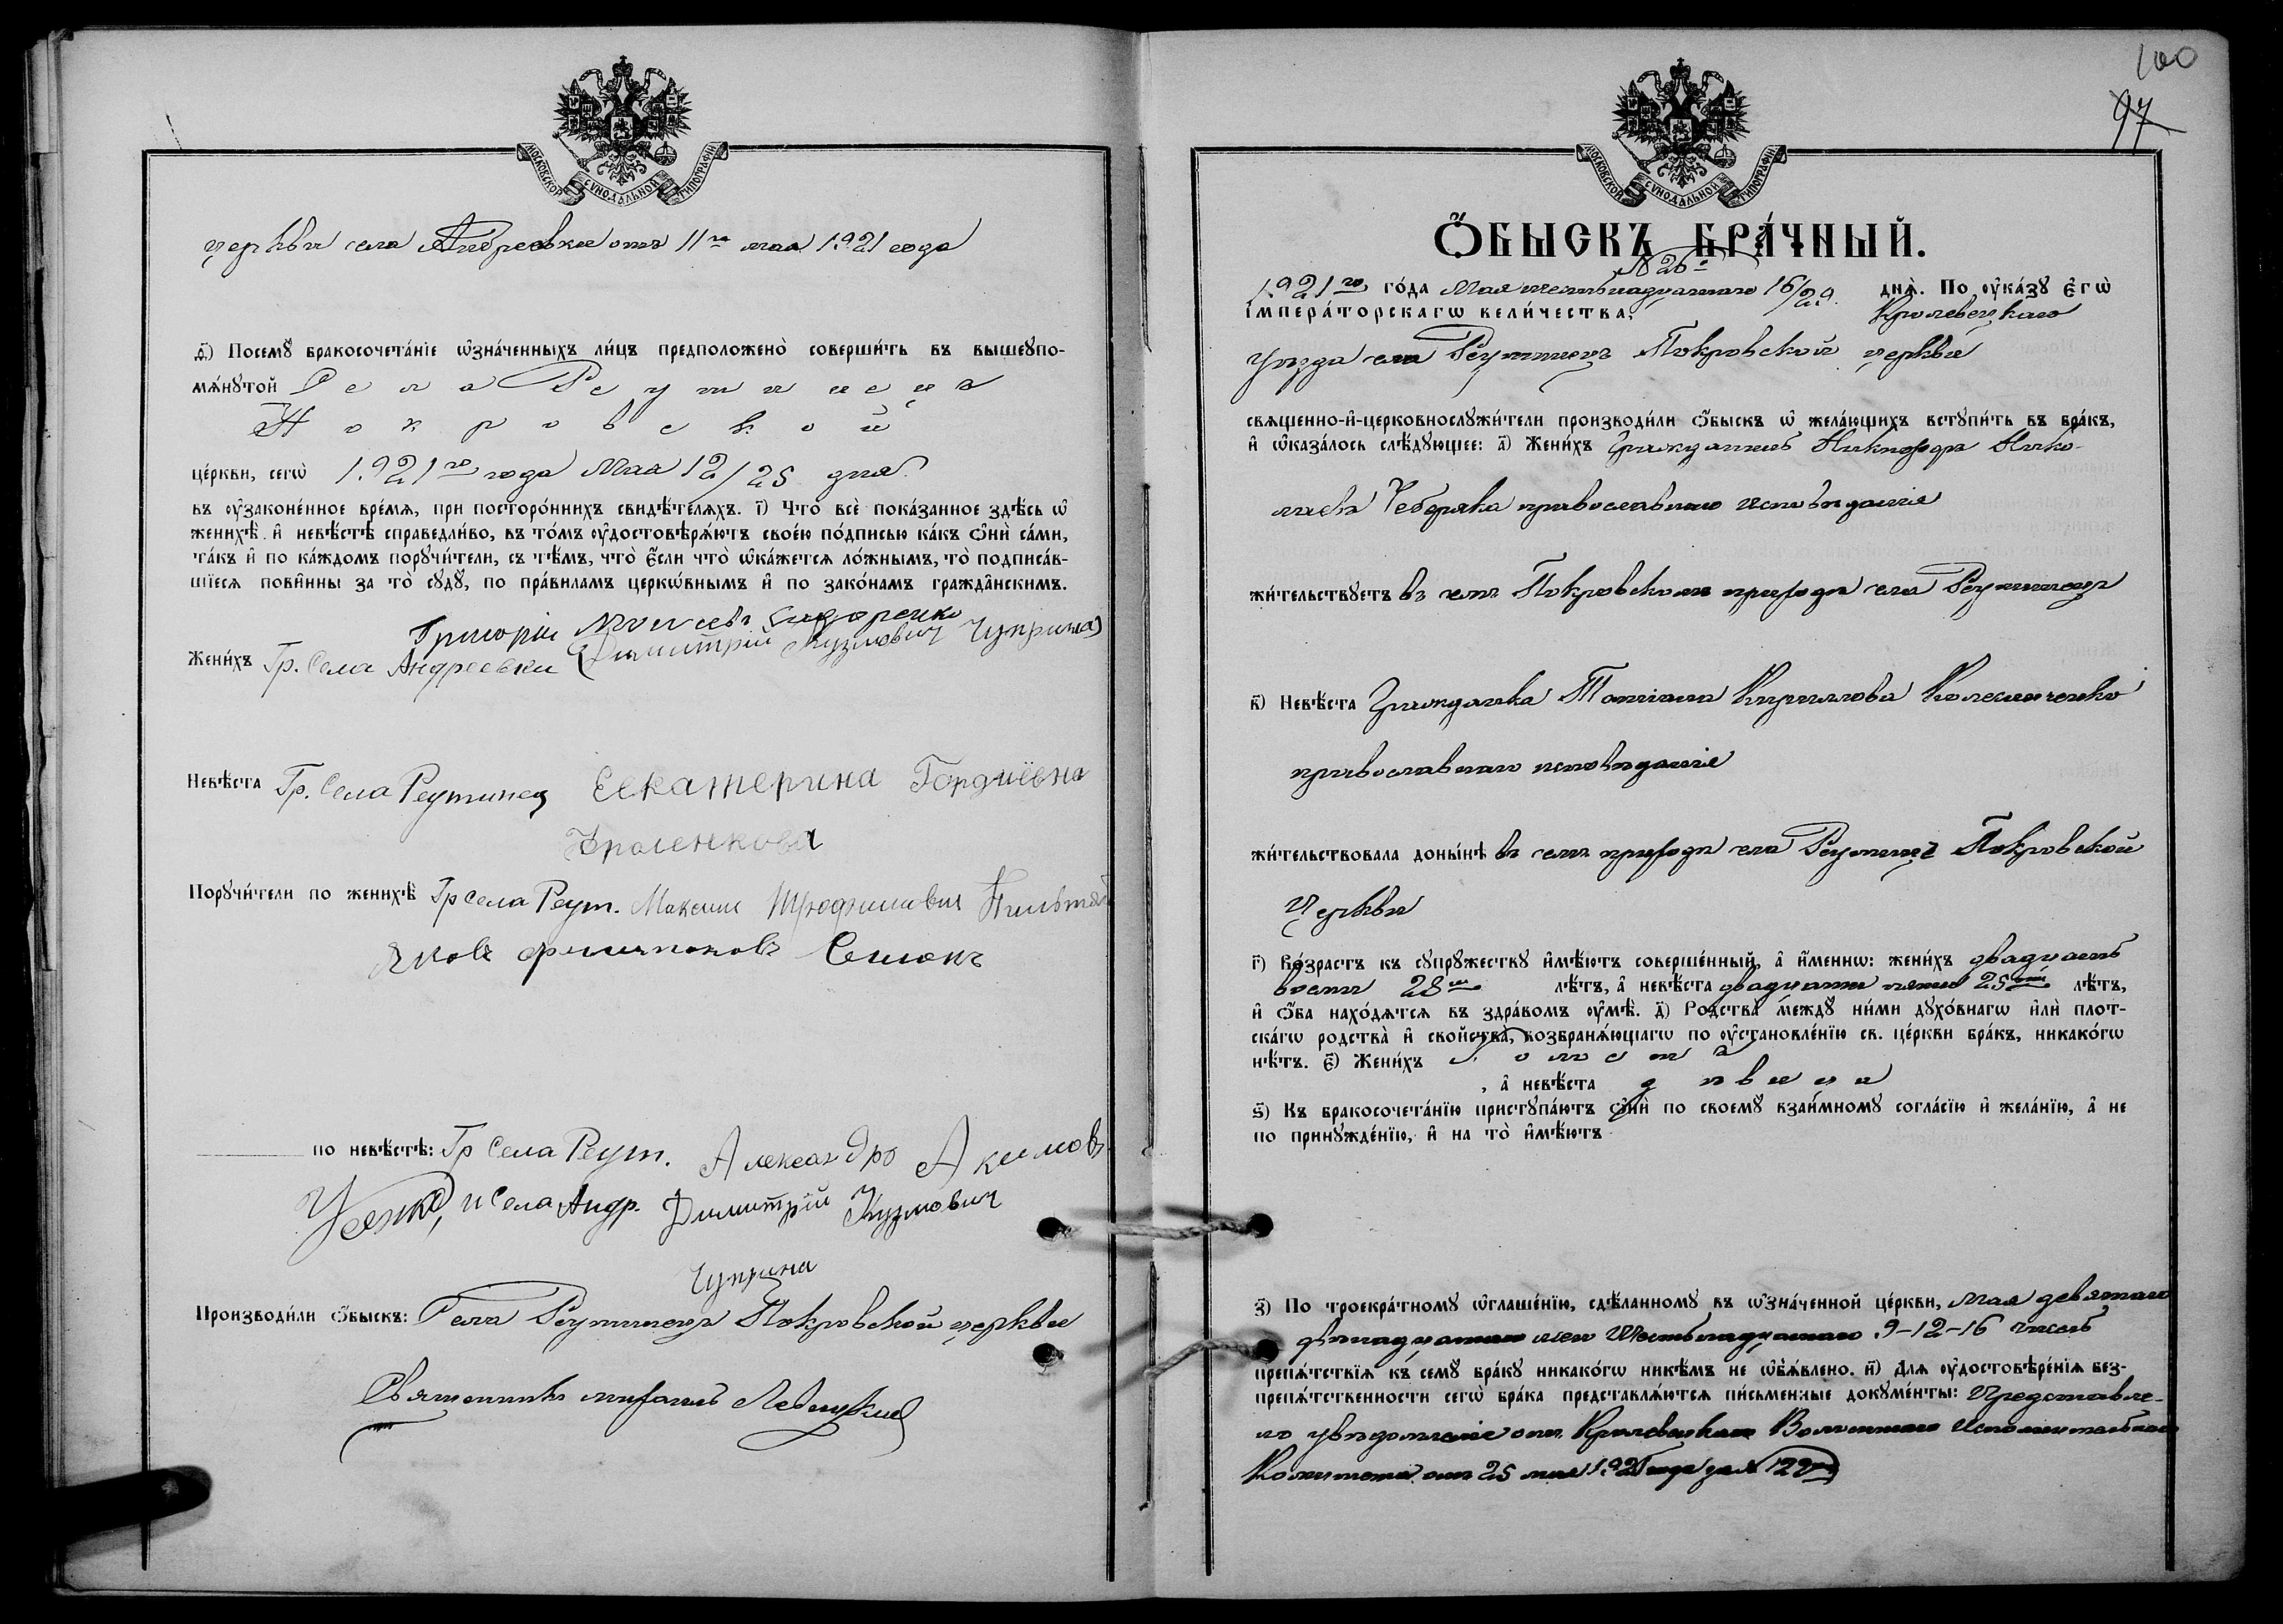 МОСКОВСКОЙ СУНОДАЛЬНОЙ ТИПОГРАФІИ
церкви села Андреевки отъ 11го мая 1921 года
ѳ҃) Посемꙋ бракосочета́нїе ѡзна́ченныхъ ли́цъ предположено̀ соверши́ть въ вышеꙋпо-
мѧ́нꙋтой Села Реутинецъ
Покровской
це́ркви, сегѡ̀ 1921го года Мая 12/25 дня
въ ᲂу҆зако́ненное вре́мѧ, при посторо́ннихъ свидѣ́телѧхъ. і҃) Что̀ всѐ пока́занное здѣ́сь ѡ҆
женихѣ̀ и҆ невѣ́стѣ справедли́во, въ то́мъ ᲂу҆достовѣрѧ́ютъ свое́ю по́дписью ка́къ ѻ҆нѝ са́ми,
та́къ и҆ по ка́ждомъ порꙋчи́тели, съ тѣ́мъ, что̀ є҆́сли что̀ ѡ҆ка́жетсѧ ло́жнымъ, то̀ подписа́в-
шїесѧ пови́нны за то̀ сꙋдꙋ̀, по пра́виламъ церкѡ́внымъ и҆ по зако́намъ гражда́нскимъ.
Григорій Моисеевъ Сидоренко
Жени́хъ Гр. Села Андреевки (Димитрій Кузмовичъ Чуприна)
Невѣ́ста Гр. Села Реутинец Eекатерина Гордиевна
Порꙋчи́тели по женихѣ̀ Гр села Реут. Максим
Яковъ Филиповъ
по невѣ́стѣ: Гр Села Реут. Александро Акимовъ
Усенко, и Села Андр. Димитрій Кузмович
Чуприна
Производи́ли ѻ҆́быскъ: Села Реутинецъ Покровской церкви
Священникъ Михаилъ
100
97
МОСКОВСКОЙ СУНОДАЛЬНОЙ ТИПОГРАФІИ
Ѻ҆́БЫСКЪ БРА́ЧНЫЙ.
№ 26й
1921го го́да Мая шестьнадцатаго 16/29 днѧ̀. По ᲂу҆ка́зꙋ є҆гѡ̀
і҆мпера́торскагѡ вели́чества, Кролевецкаго
уѣзда села Реутинецъ Покровской церкви
свѧщенно-и҆-церковнослꙋжи́тели производи́ли ѻ҆́быскъ ѡ҆ жела́ющихъ встꙋпи́ть въ бра́къ,
и҆ ѡ҆каза́лось слѣ́дꙋющее: а҃) Жени́хъ Гражданинъ Никифоръ Нико-
лаевъ Чеберяка православнаго исповѣданія
жи́тельствꙋетъ въ селѣ Покровскомъ приходѣ села Реутинецъ
в҃) Невѣ́ста Гражданка Татіана Кириллова Колесниченко
православнаго исповѣданія
жи́тельствовала доны́нѣ въ селѣ приходѣ села Реутинецъ Покровской
Церкви
г҃) Во́зрастъ къ сꙋпрꙋ́жествꙋ и҆мѣ́ютъ соверше́нный, а҆ и҆́меннѡ: жени́хъ двадцать
восемь 28 лѣ́тъ, а҆ невѣ́ста двадцати пяти 25 лѣ́тъ,
и҆ ѻ҆́ба нахо́дѧтсѧ въ здра́вомъ ᲂу҆мѣ̀. д҃) Родства̀ междꙋ̀ ни́ми дꙋхо́внагѡ и҆лѝ плот-
ска́гѡ родства̀ и҆ свойства̀, возбранѧ́ющагѡ по ᲂу҆становле́нїю св. це́ркви бра́къ, никако́гѡ
нѣ́тъ. є҃) Жени́хъ холостъ
, а҆ невѣ́ста дѣвица
ѕ҃) Къ бракосочета́нїю пристꙋпа́ютъ ѻ҆нѝ по своемꙋ̀ взаи́мномꙋ согла́сїю и҆ жела́нїю, а҆ не
по принꙋжде́нїю, и҆ на то̀ и҆мѣ́ютъ
з҃) По троекра́тномꙋ ѡ҆глаше́нїю, сдѣ́ланномꙋ въ ѡзна́ченной це́ркви, Мая девятаго
двѣнадцатаго и Шестьнадцатаго 9-12-16 числъ
препѧ́тствїѧ къ семꙋ̀ бра́кꙋ никако́гѡ никѣ́мъ не ѡ҆б̾ѧ́влено. и҃) Длѧ ᲂу҆достовѣре́нїѧ без-
препѧ́тственности сегѡ̀ бра́ка представлѧ́ютсѧ пи́сьменные докꙋме́нты: Представле-
но увѣдомленіе отъ Кролевецкаго Волостнаго Исполнительнаго
Комитета отъ 25 мая 1921 года за №122